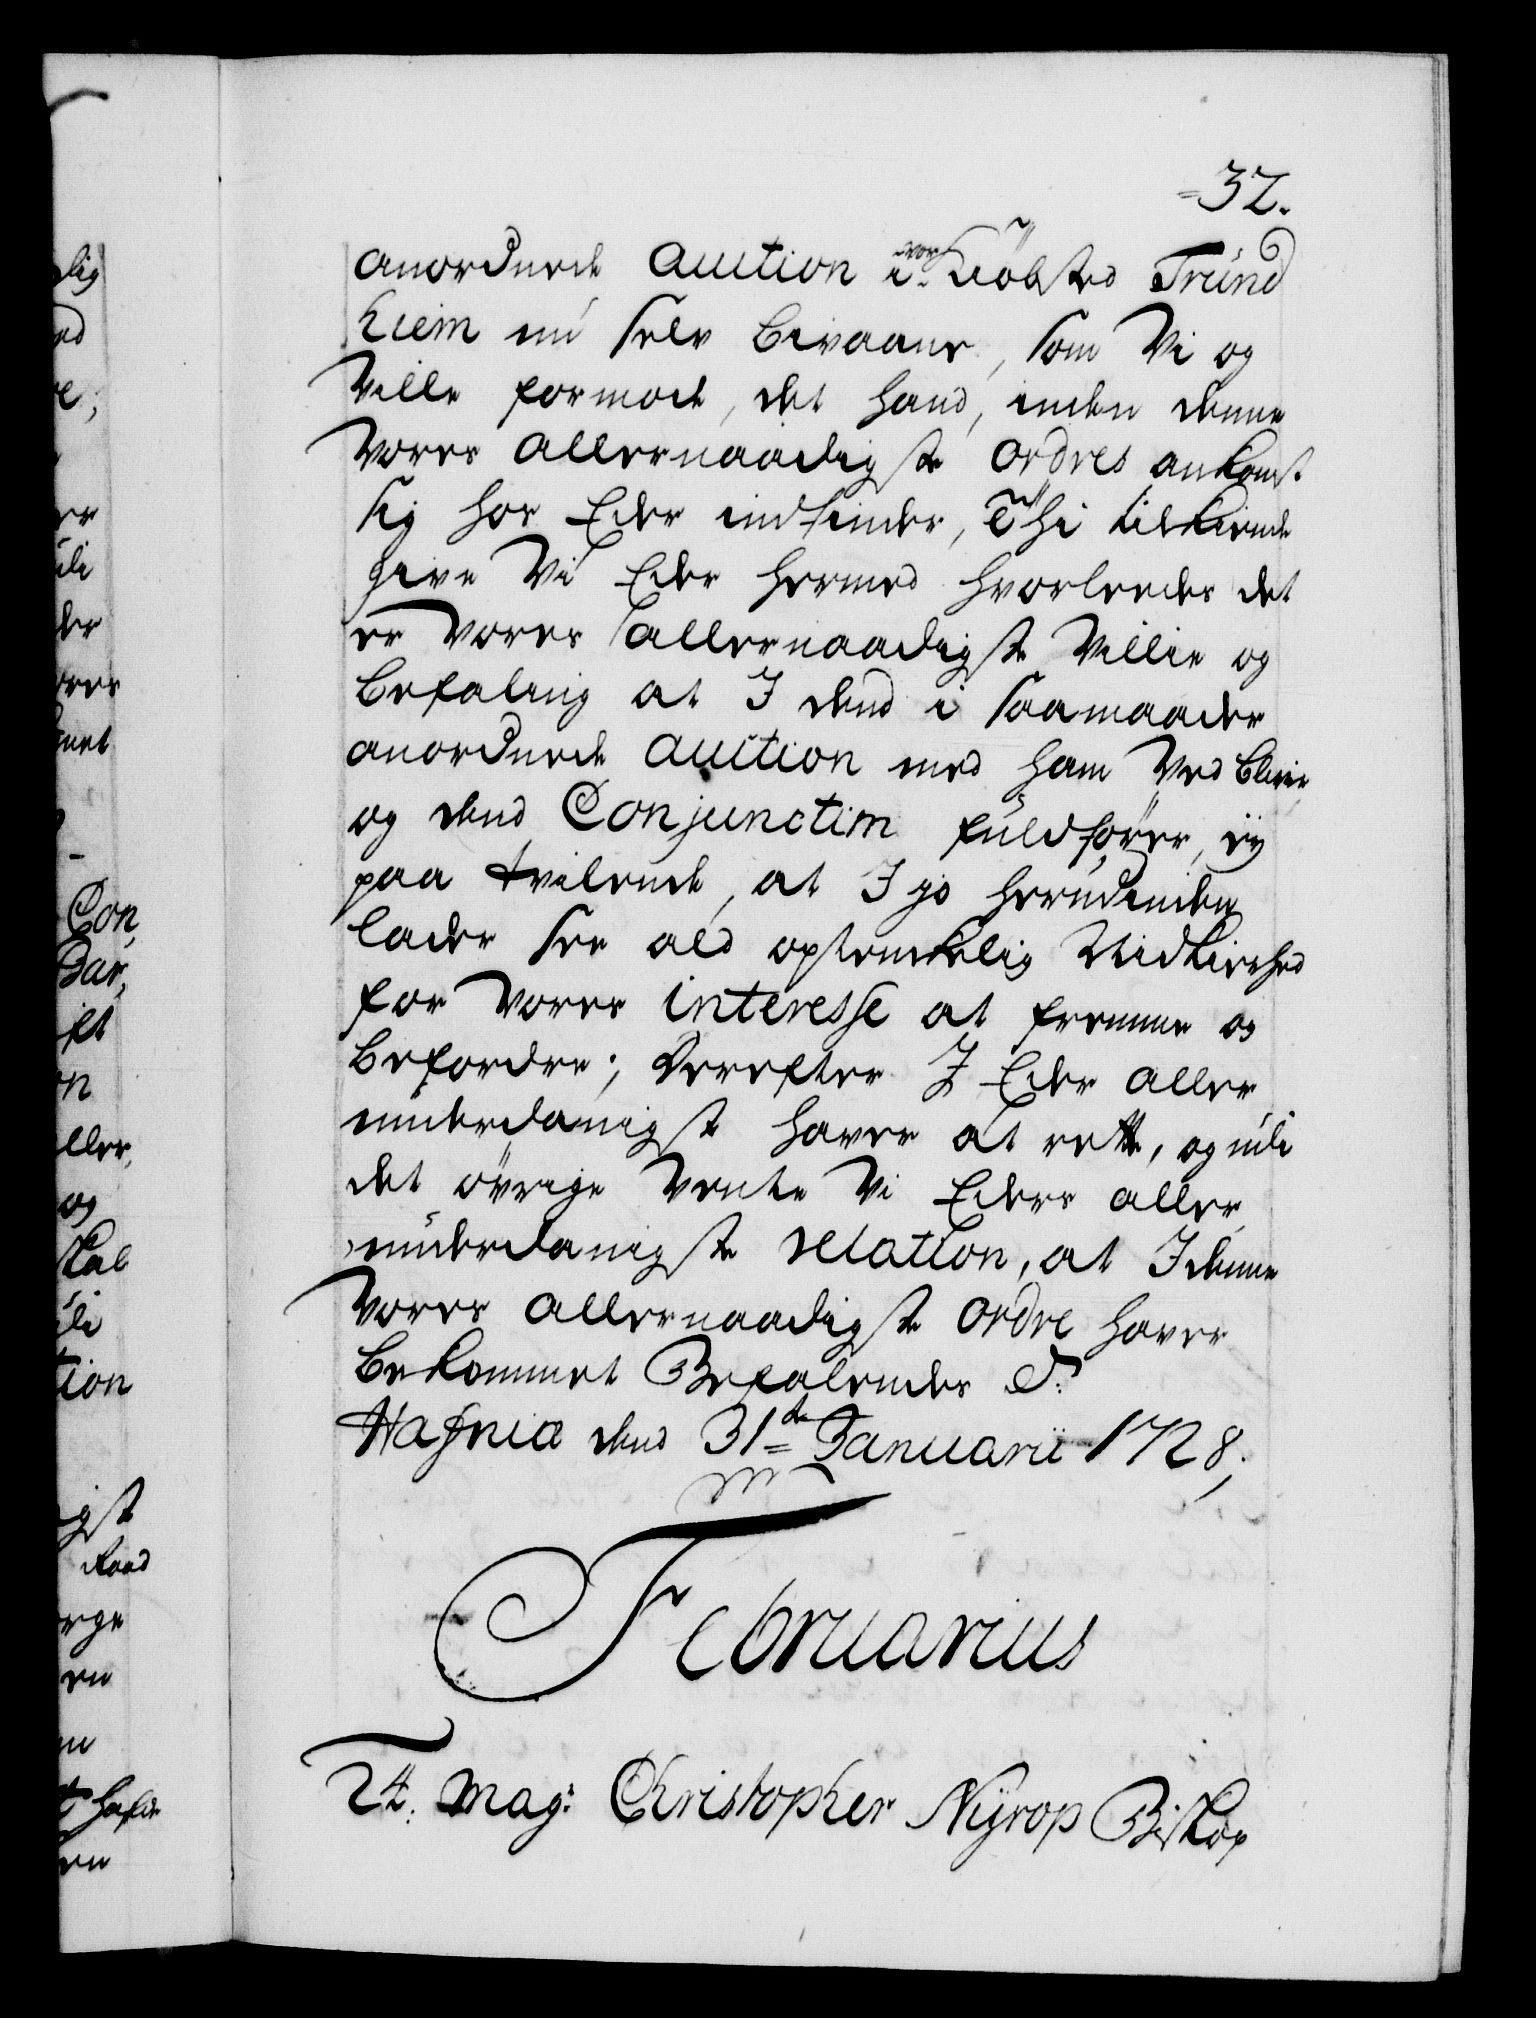 32.
anordnede Auction i vor Kiöbsted Trund
hiem nu selv bivaane, som Vi og
Ville formode, det hand, inden denne
Vores allernaadigste ordres ankomst
sig hos Eder indfinder, Thi tilkiende
give Vi Eder hermed hvorledes det
er Vores allernaadigste Villie og
befaling at I dend i saamaader
anordnede Auction med ham Ved blive,
og dend Conjunctim fuldfører, ey
paa tvilende, at I jo herudinden
lader see ald optenkelig Nidkierhed
for Vores interesse at fremme og
befordre; Derefter I Eder aller
underdanigst haver at rette, og udi
det øvrige Vente Vi Eders aller,
underdanigste relation, at I denne
Vores allernaadigste ordre haver
bekommet Befalendes &:
Hafniæ dend 31=te Januarii 1728;
Februarius
24. Mag: Christopher Nÿrop Biskop
lig
Con,
Bar,
og
skal
tion